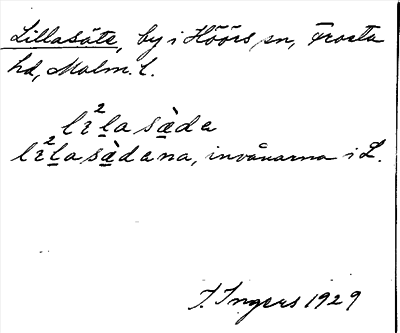 Lillasäte, by i Höörs sn, Frosta
hd, Malm. l.
lɪ²l̲a sàde
lɪ²l̲asàdana, invånarna i L.
I. Ingers 1929